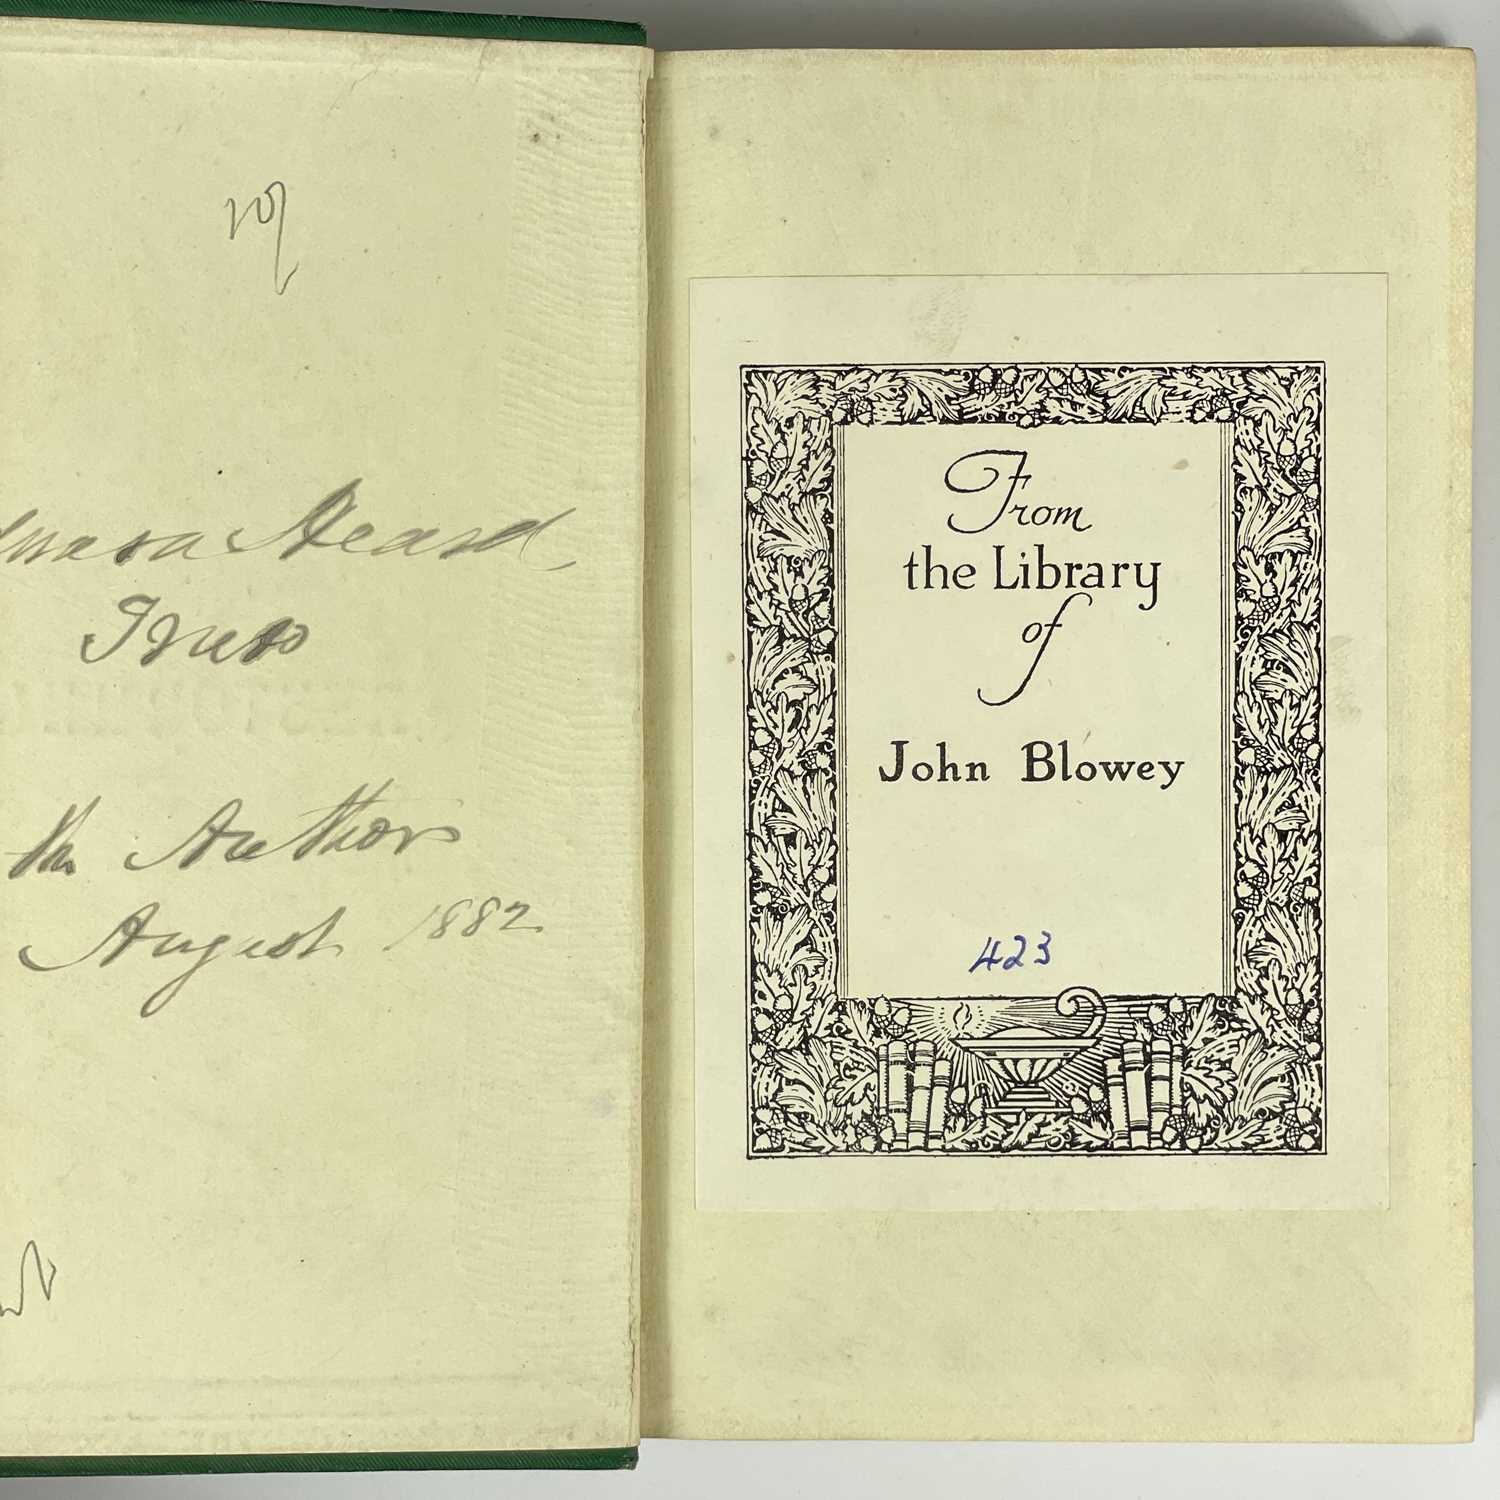 Heard
the Author
August 1882
From
the Library
of
John Blowey
423